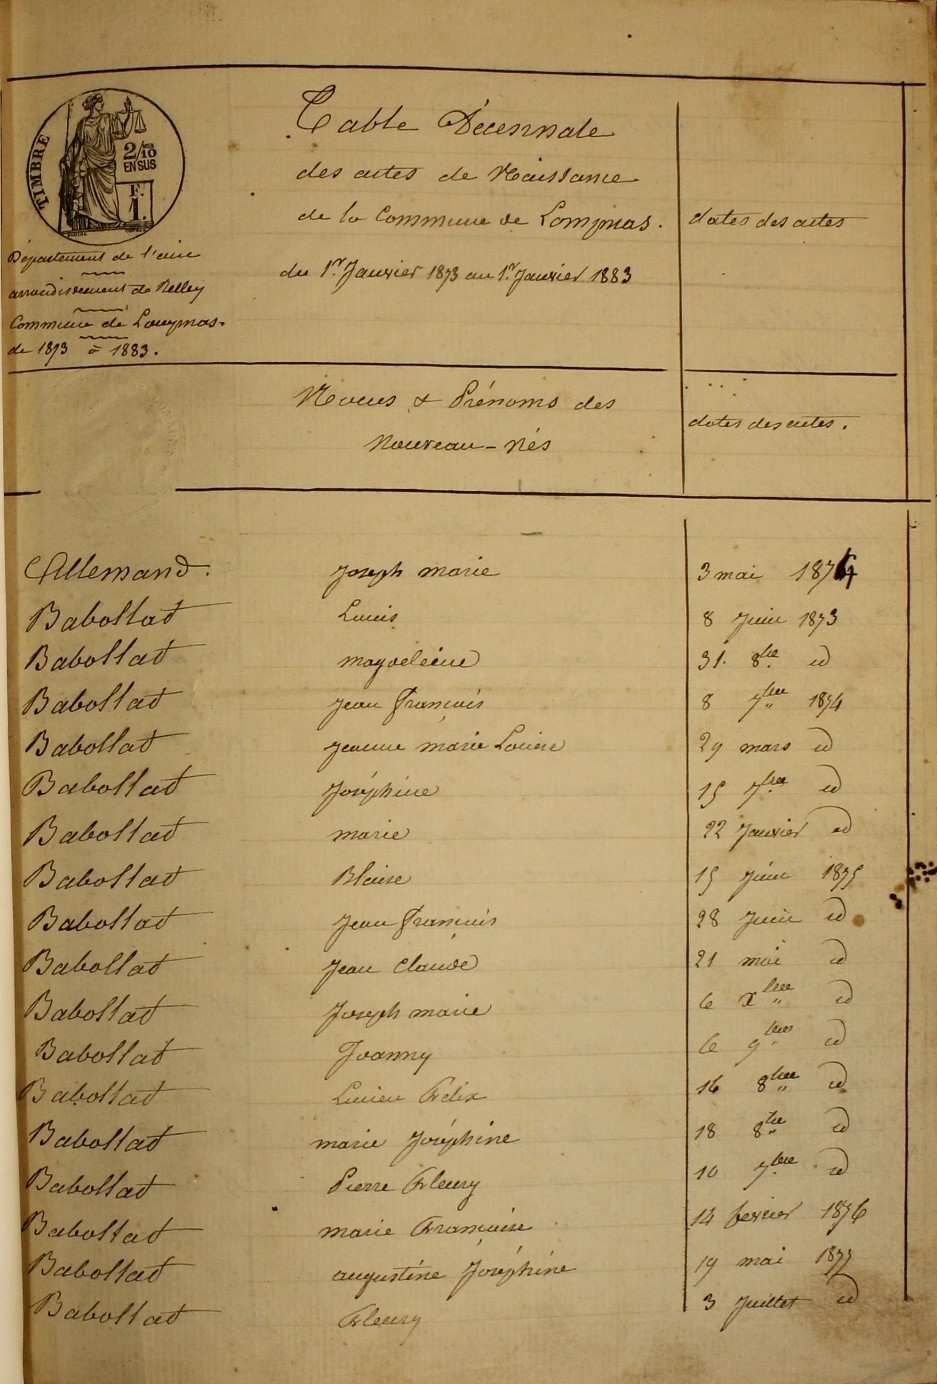 TIMBRE
2/10
EN SUS
F.
1.
Département de l'ain
arrondissement de Belley
Commune de Lompnas.
de 1873 à 1883.
Table Décennale
des actes de Naissance
de la Commune de Lompnas.
du 1.er Janvier 1873 au 1.er Janvier 1883
dates des actes
Noms & Prénoms des
Nouveau-Nés
dates des actes.
Allemand. Joseph marie 3 mai 1874
Babollat Louis 8 Juin 1873
Babollat magdeleine 31. 8bre id
Babollat Jean François 8 7bre 1874
Babollat Jeanne marie Louise 29 mars id
Babollat Joséphine 15 7bre id
Babollat marie 22 Janvier id
Babollat Blaise 15 Juin 1875
Babollat Jean François 28 Juin id
Babollat Jean Claude 21 mai id
Babollat Joseph marie 6 xbre id
Babollat Joanny 6 9bre id
Babollat Lucien Félix 16 8bre id
Babollat marie Joséphine 18 8bre id
Babollat Pierre Fleury 10 7bre id
Babollat marie Françoise 14 fevrier 1876
Babollat augustine Joséphine 19 mai 1877
Babollat Fleury 3 Juillet id